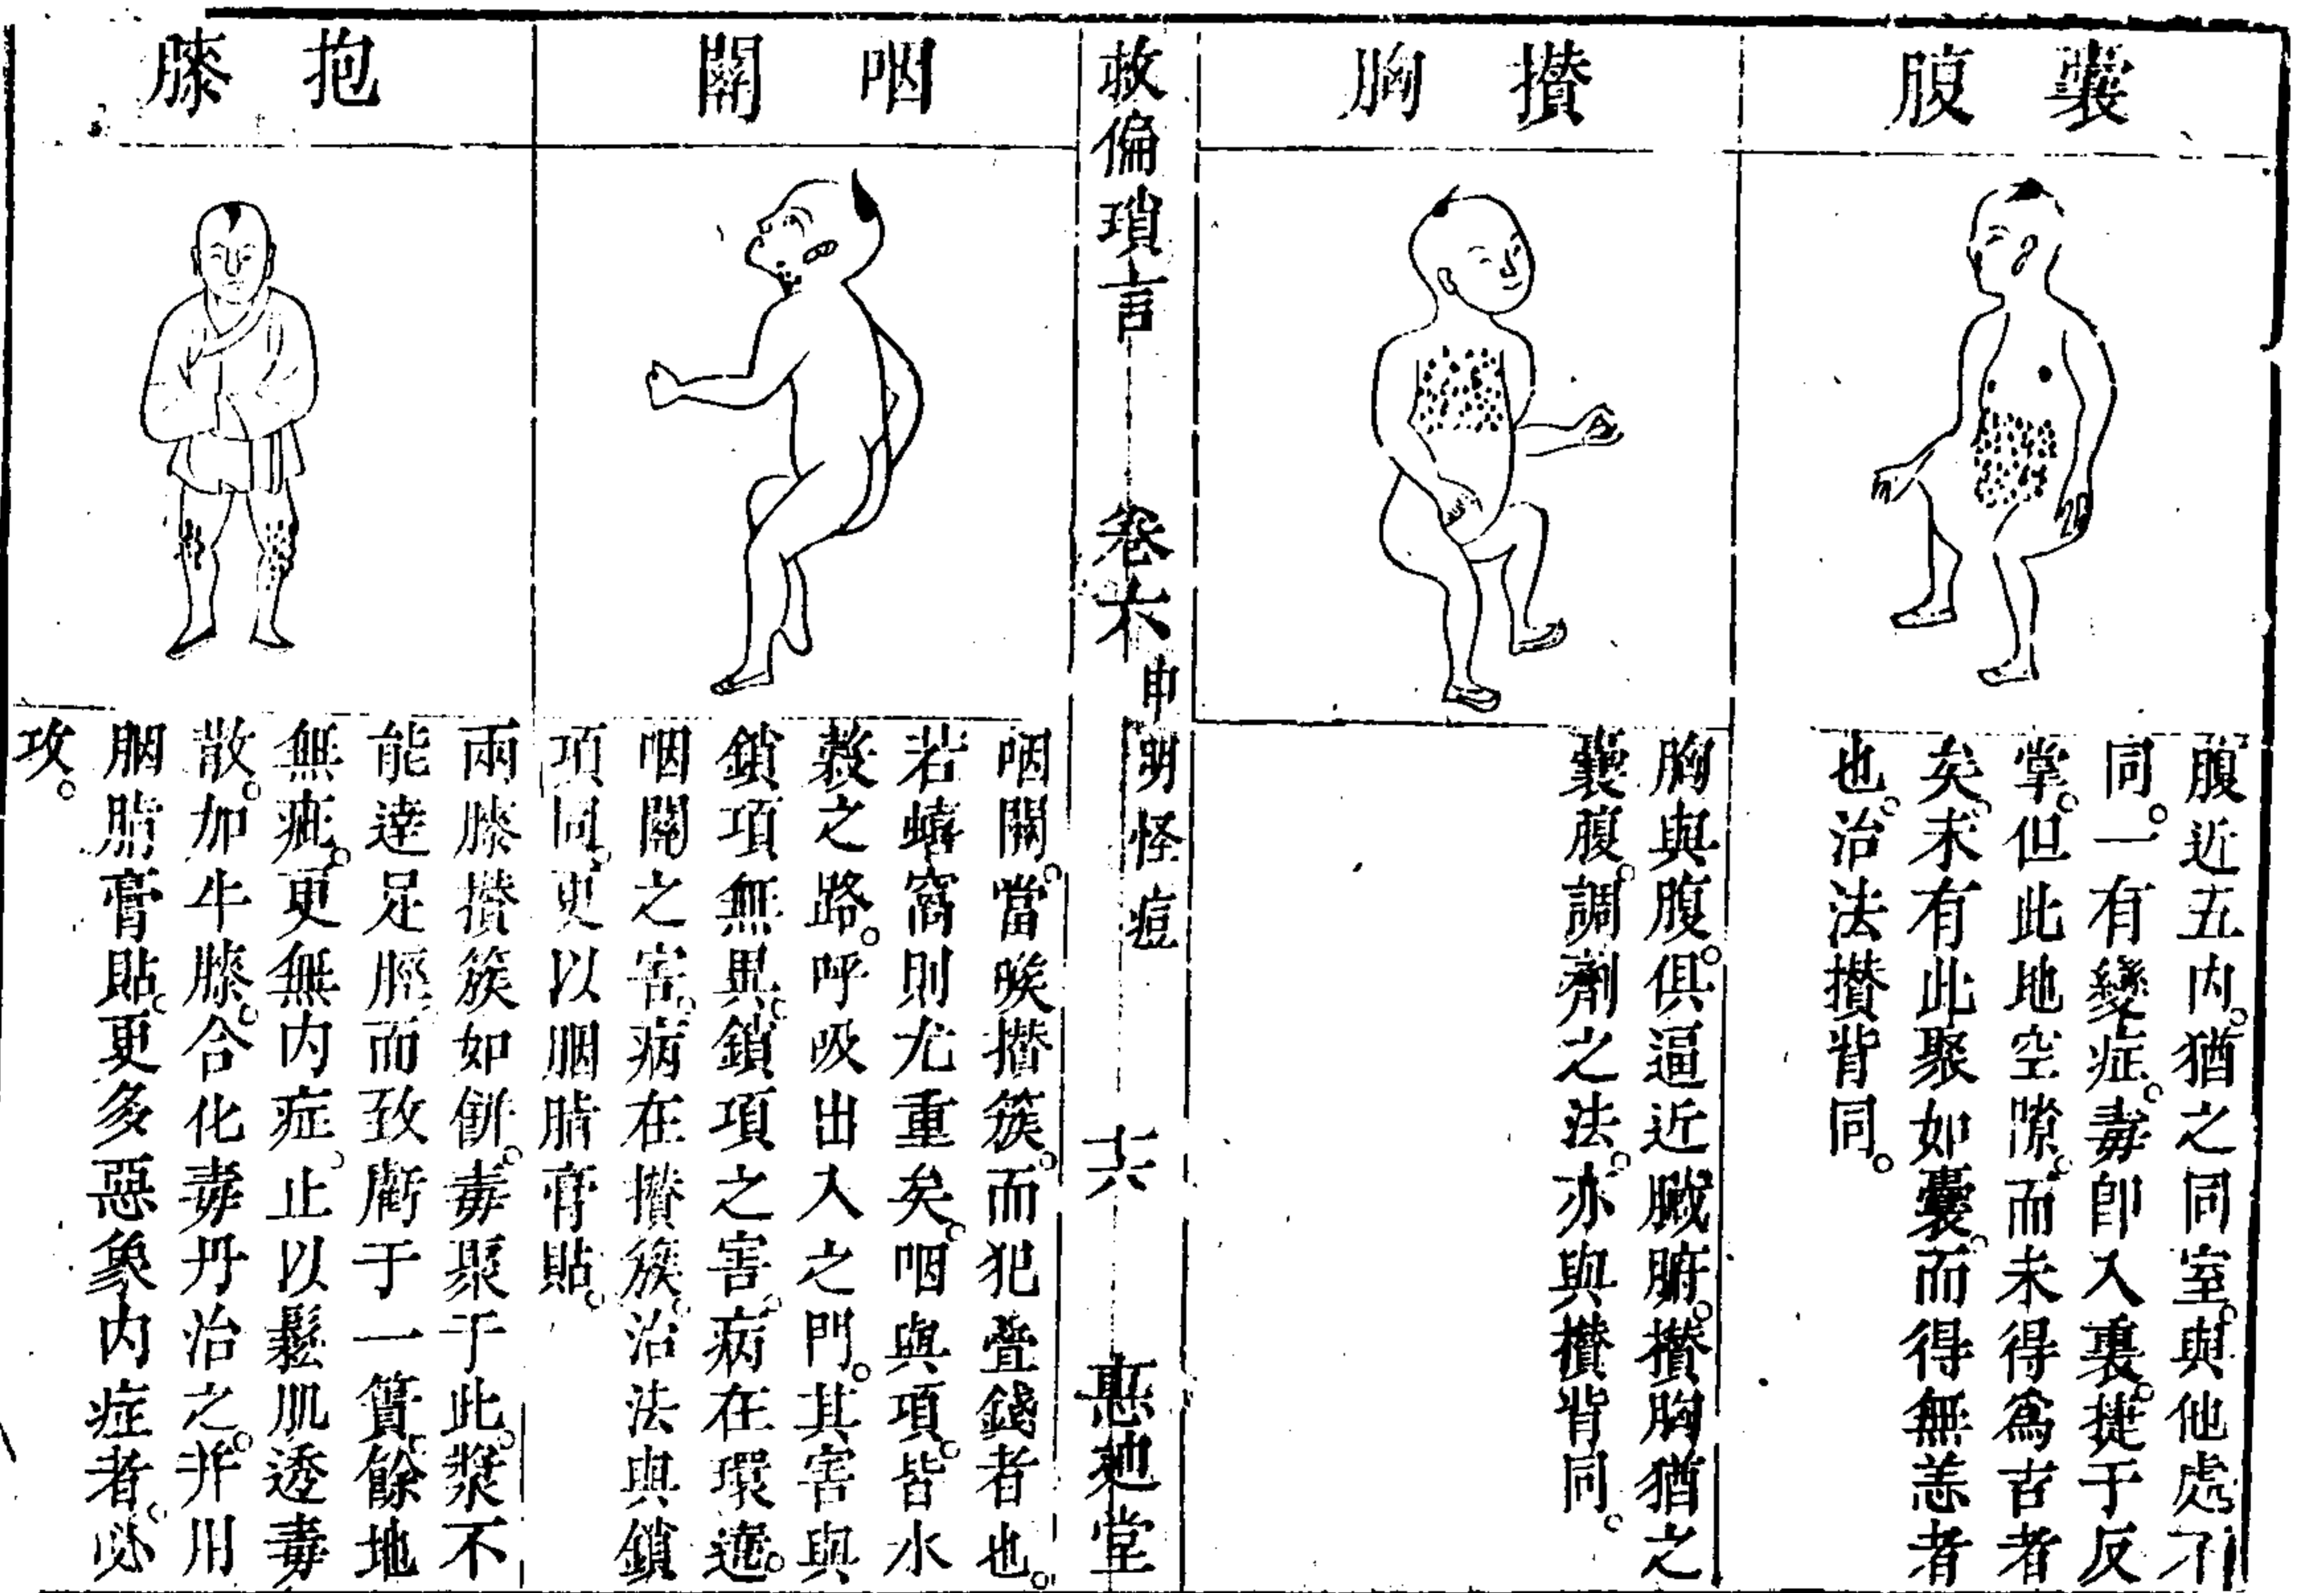 囊腹
腹近五内。猶之同室。與他處不
同。一有變症。毒即入裏。捷于反
掌。但此地空隙。而未得爲吉者
矣。未有此聚如囊。而得無恙者
也。治法攅背同。
攅胸
胸與腹。俱逼近臓腑。攅胸猶之
囊腹。調劑之法。亦與攅背同。
救偏瑣言
卷六
申明怪痘
十六
惹廸堂
咽關
咽關。當喉攅簇。而犯疊錢者也。
若蟢窩則尤重矣。咽與項。皆水
穀之路。呼吸出入之門。其害與
鎖項無異。鎖項之害。病在環遶。
咽關之害。病在攅簇。治法與鎖
項同。更以胭脂膏貼。
抱膝
兩膝攅簇如餅。毒聚于此。漿不
能達足脛。而致虧于一簣。餘地
無疵。更無内症。止以鬆肌透毒
散。加牛膝。合化毒丹治之。并用
胭脂膏貼。更多惡象内症者。必
攻。